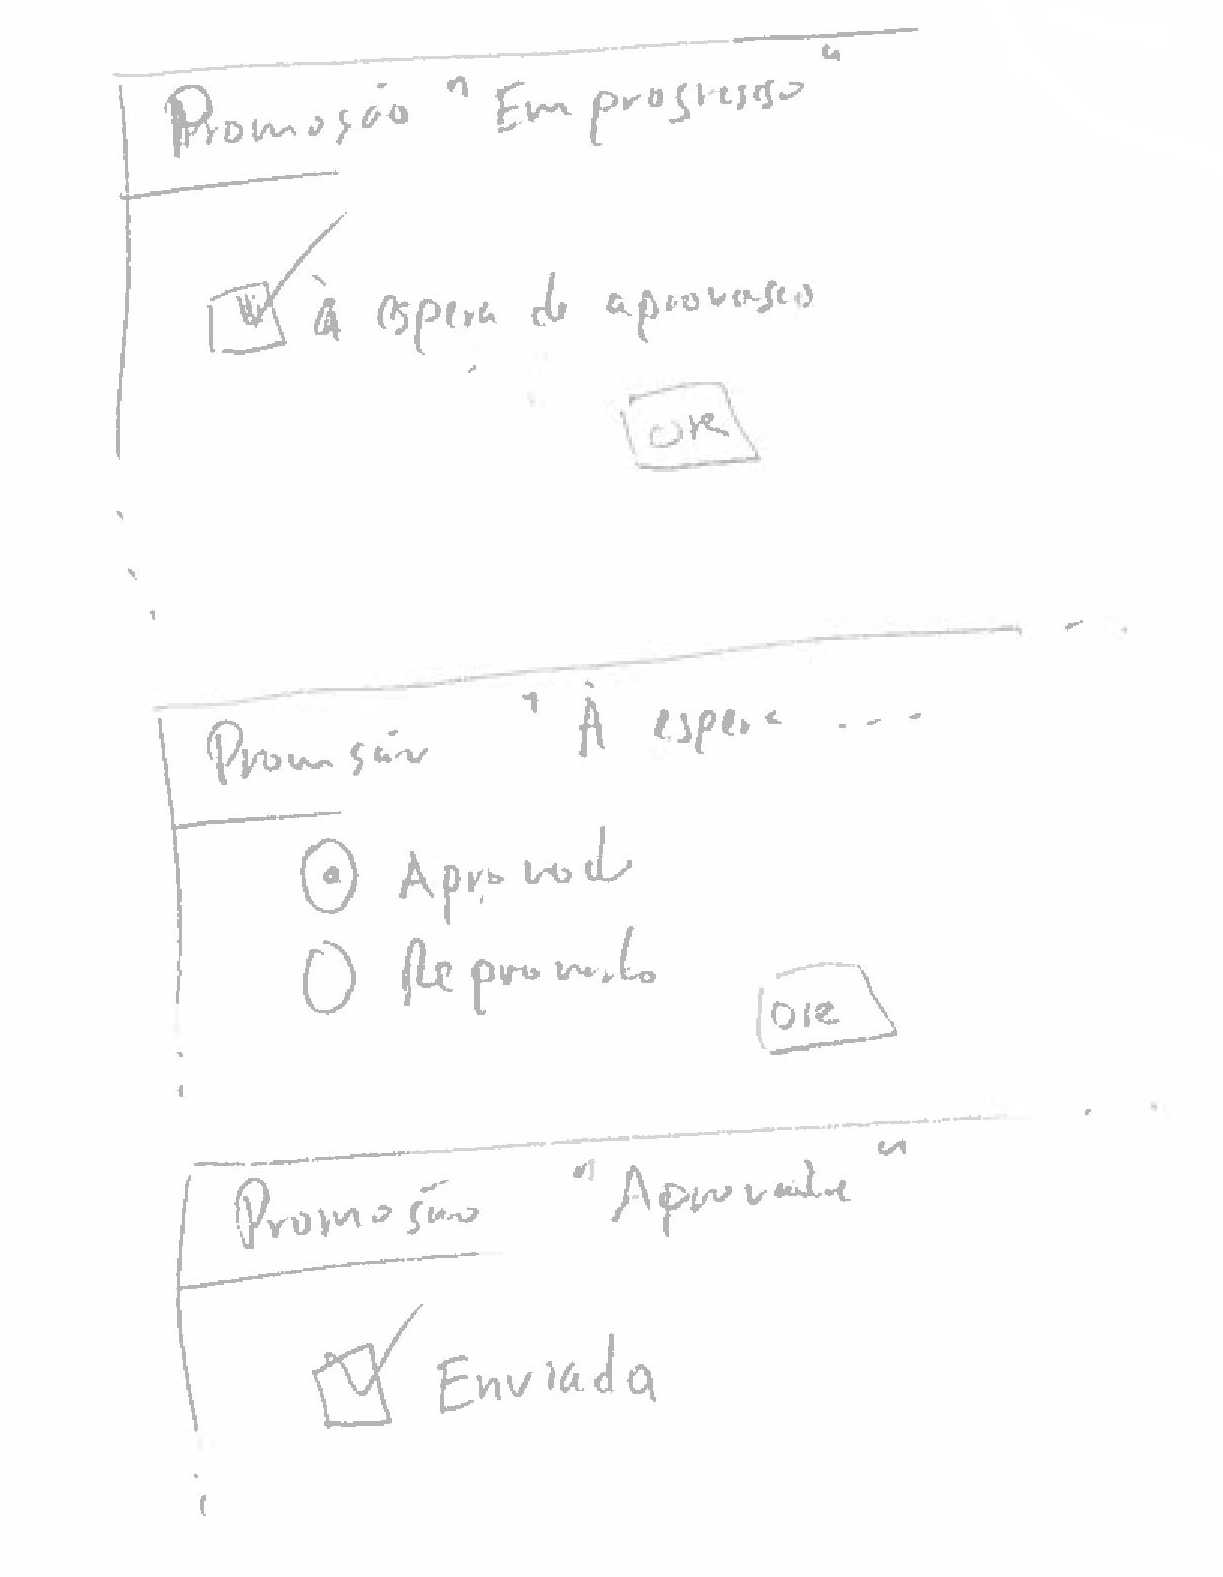 Promoção "Em progresso"
à espera de aprovação
OK
Promoção "À espera ...
Aprovado
Reprovado
OK
Promoção "Aprovada"
Enviada